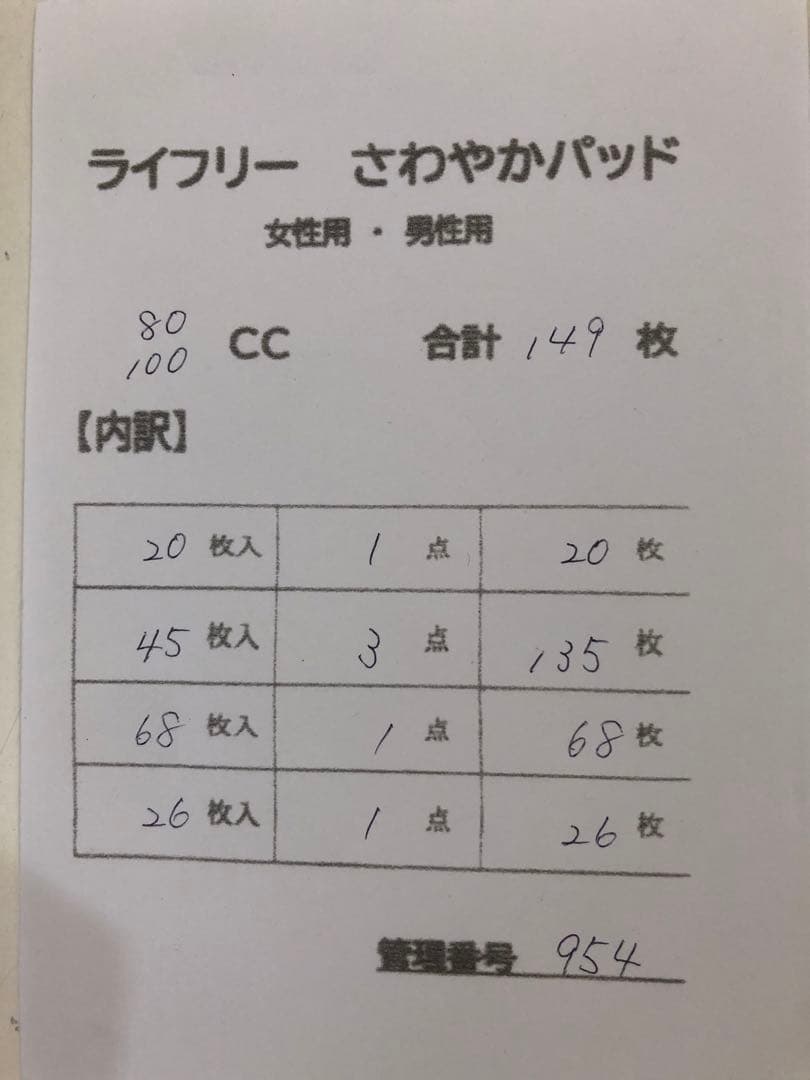 ライフリー さわやかパッド
女性用 ・ 男性用
80
100 CC 合計 149 枚
【内訳】
20 枚入 1 点 20 枚
45 枚入 3 点 135 枚
68 枚入 1 点 68 枚
26 枚入 1 点 26 枚
管理番号 954